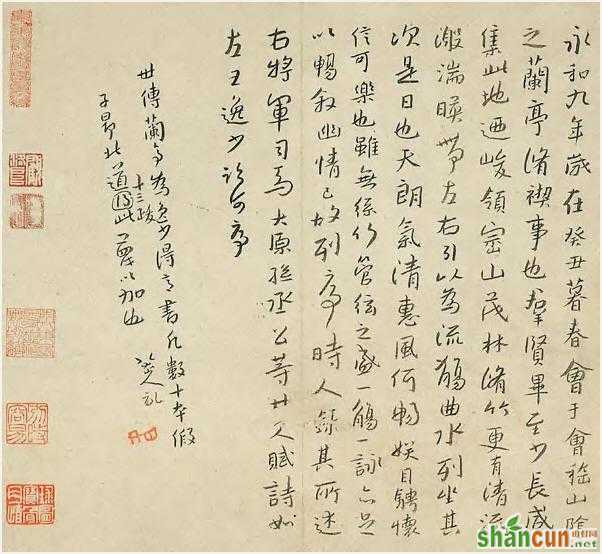 永和九年歲在癸丑暮春會于會稽山陰
之蘭亭脩禊事也羣賢畢至少長咸
集此地迺峻領崇山茂林脩竹更有清流
激湍暎帶左右引以為流觴曲水列坐其
次是日也天朗氣清惠風何暢娛目騁懷
信可樂也雖無絲竹管弦之盛一觴一詠亦足
以暢敘幽情已故列序時人錄其所述
右將軍司馬太原孫丞公等廿人賦詩如
左王逸少序
世傳蘭亭為逸少得意書凡數十本假
子昂十三跋此道以加也
shancun
.net